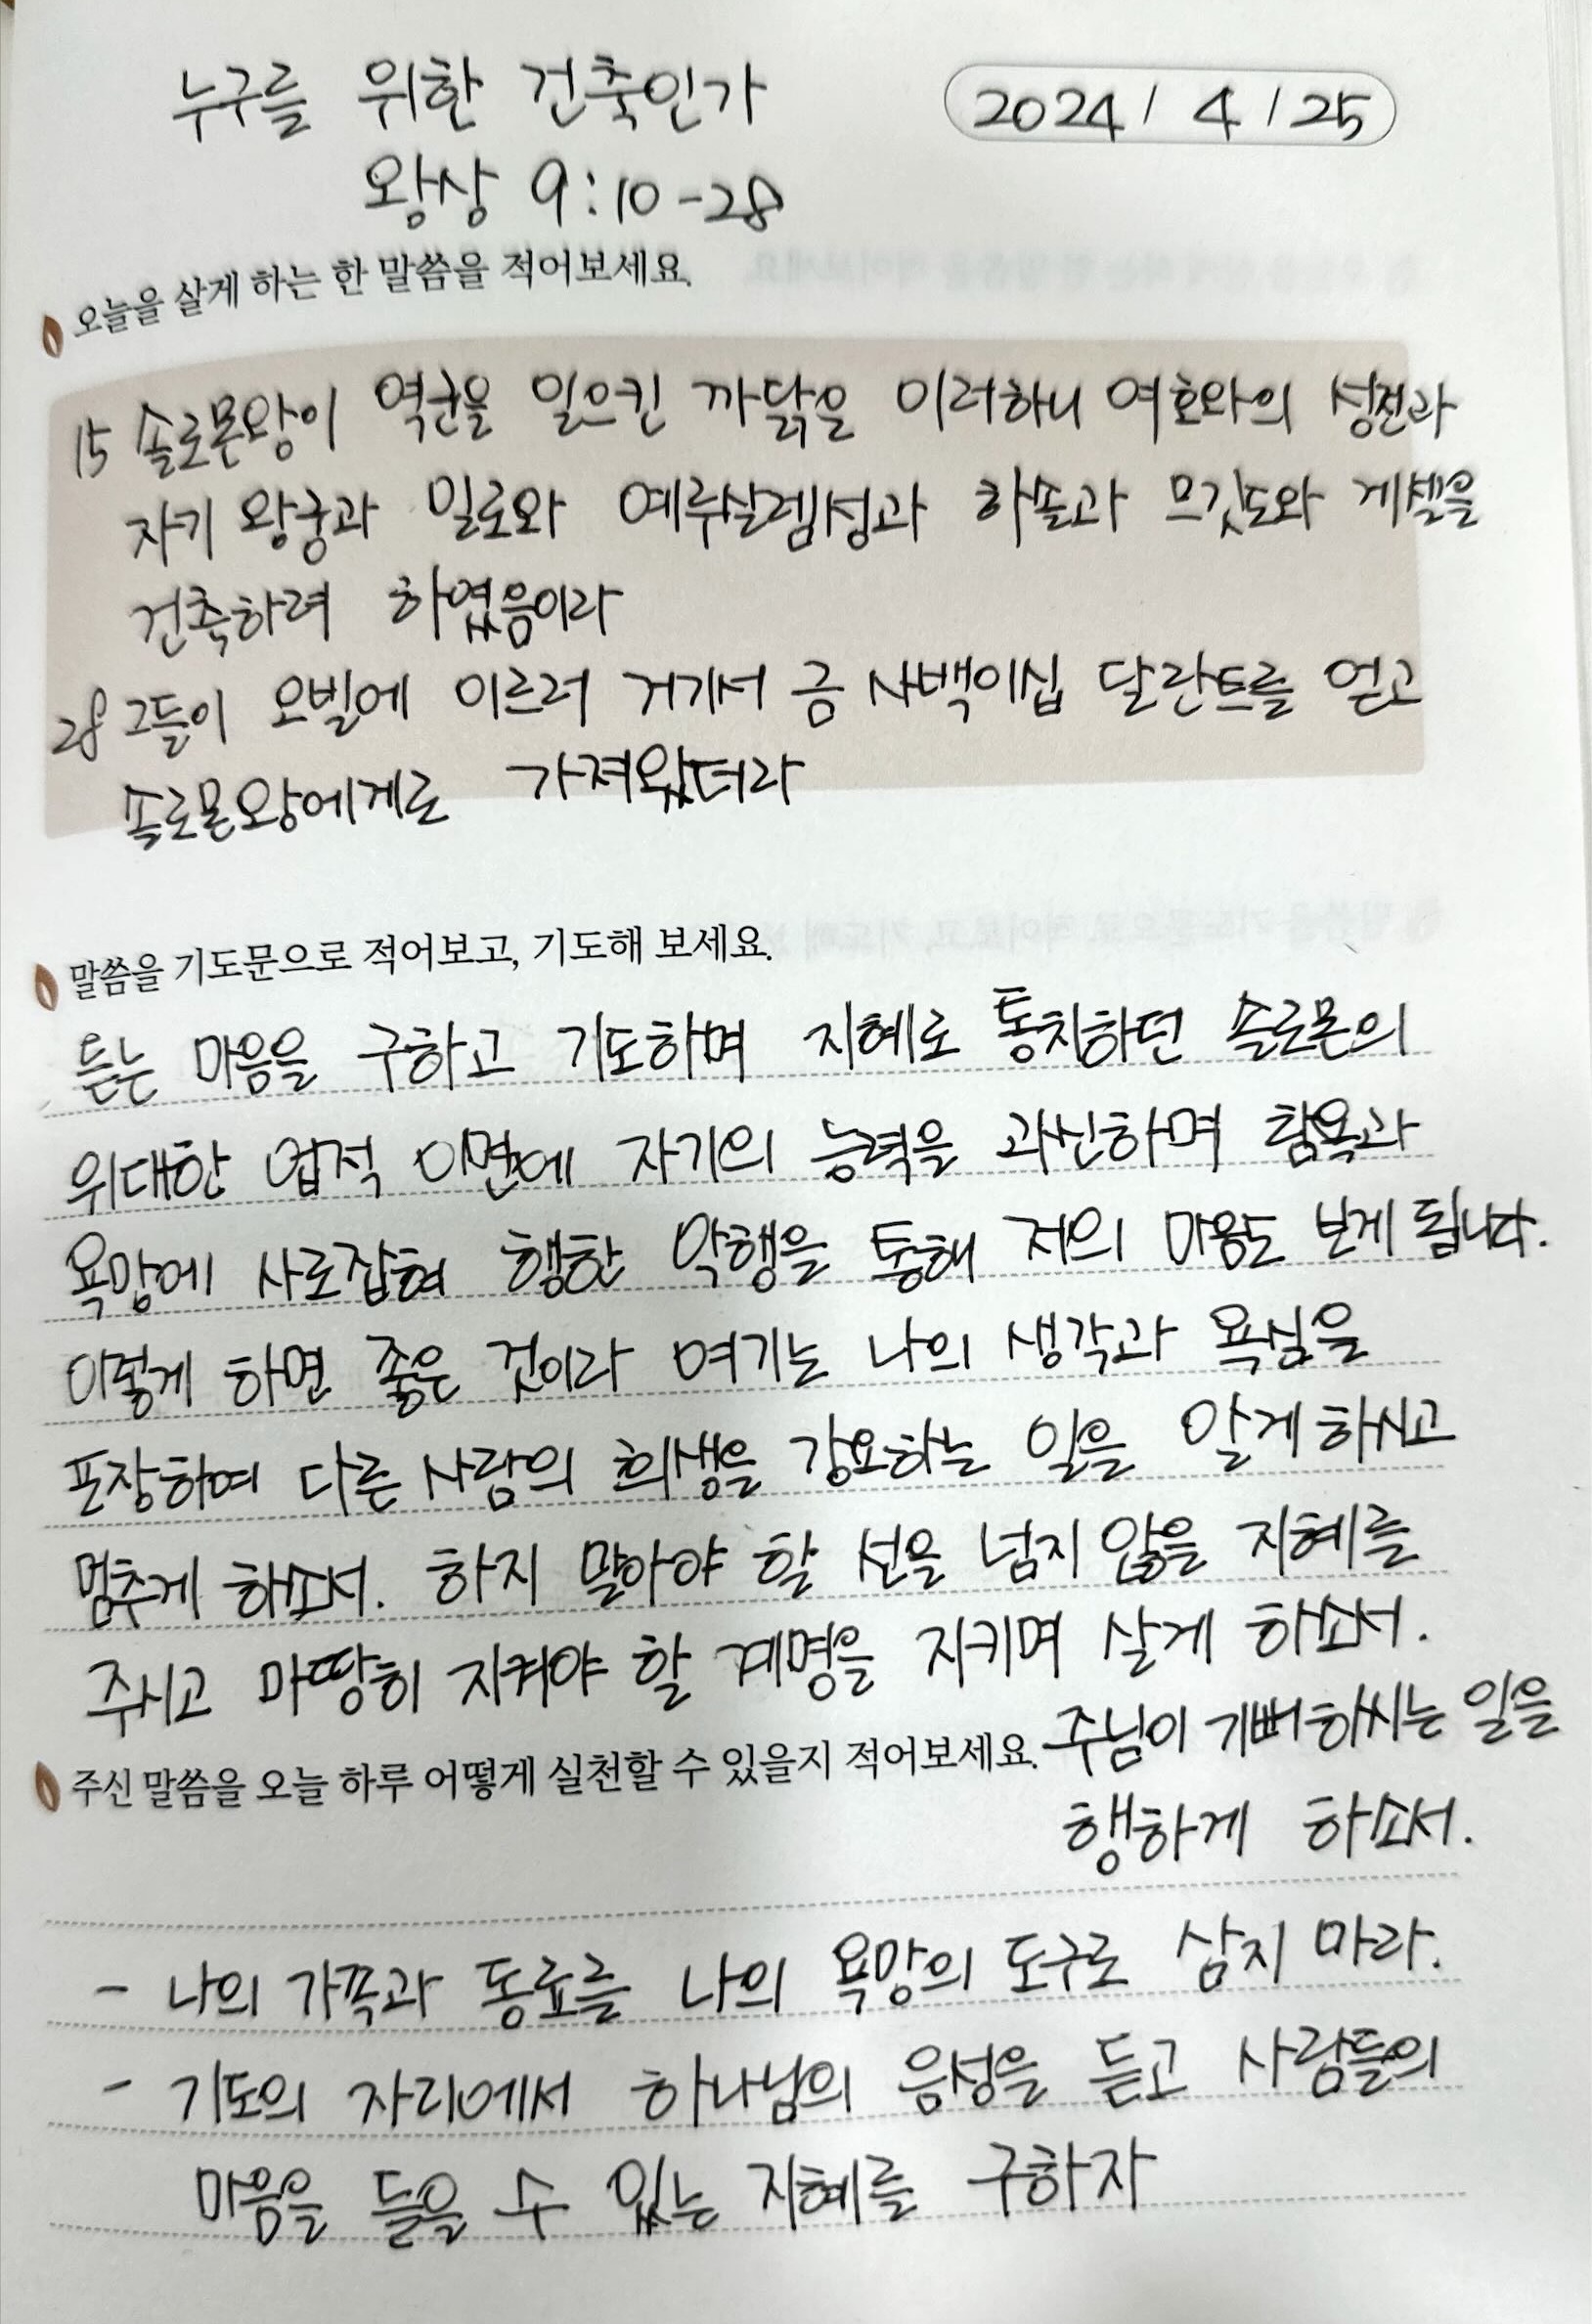 누구를 위한 건축인가
2024 / 4 / 25
왕상 9:10-28
오늘을 살게 하는 한 말씀을 적어보세요.
15 솔로몬왕이 역군을 일으킨 까닭을 이러하니 여호와의 성전과
자기 왕궁과 밀로와 예루살렘성과 하솔과 므깃도와 게셀을
건축하려 하였음이라
28 그들이 오빌에 이르러 거기서 금 사백이십 달란트를 얻고
솔로몬왕에게로 가져왔더라
말씀을 기도문으로 적어보고, 기도해 보세요.
듣는 마음을 구하고 기도하며 지혜로 통치하던 솔로몬의
위대한 업적 이면에 자기의 능력을 과신하며 탐욕과
욕망에 사로잡혀 행한 악행을 통해 저의 마음도 보게 됩니다.
이렇게 하면 좋은 것이라 여기는 나의 생각과 욕심을
포장하여 다른 사람의 희생을 강요하는 일을 알게 하시고
멈추게 하소서. 하지 말아야 할 선을 넘지 않을 지혜를
주시고 마땅히 지켜야 할 계명을 지키며 살게 하소서.
주님이 기뻐하시는 일을
행하게 하소서.
주신 말씀을 오늘 하루 어떻게 실천할 수 있을지 적어보세요.
- 나의 가족과 동료를 나의 욕망의 도구로 삼지 마라.
- 기도의 자리에서 하나님의 음성을 듣고 사람들의
마음을 들을 수 있는 지혜를 구하자